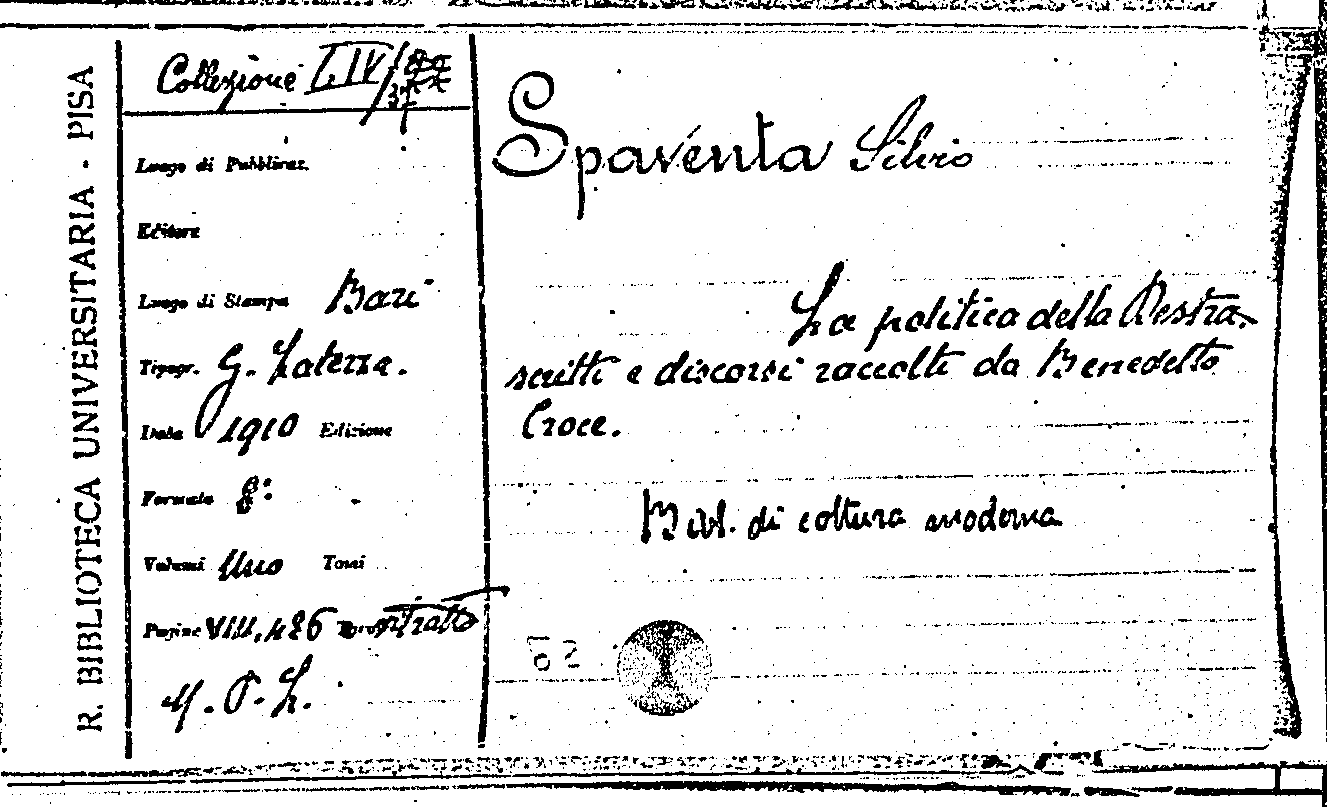 R. BIBLIOTECA UNIVERSITARIA - PISA
Collezione
Luogo di Pubblicaz.
Editore
Luogo di Stampa Bari
Tipogr. G. Laterza.
Data 1910 Edizione
Formato 8°
Volumi Uno Tomi
Pagine VIII, 486 ritratto
Spaventa Silvio
La politica della Destra.
scritti e discorsi raccolti da Benedetto
Croce.
Bibl. di coltura moderna